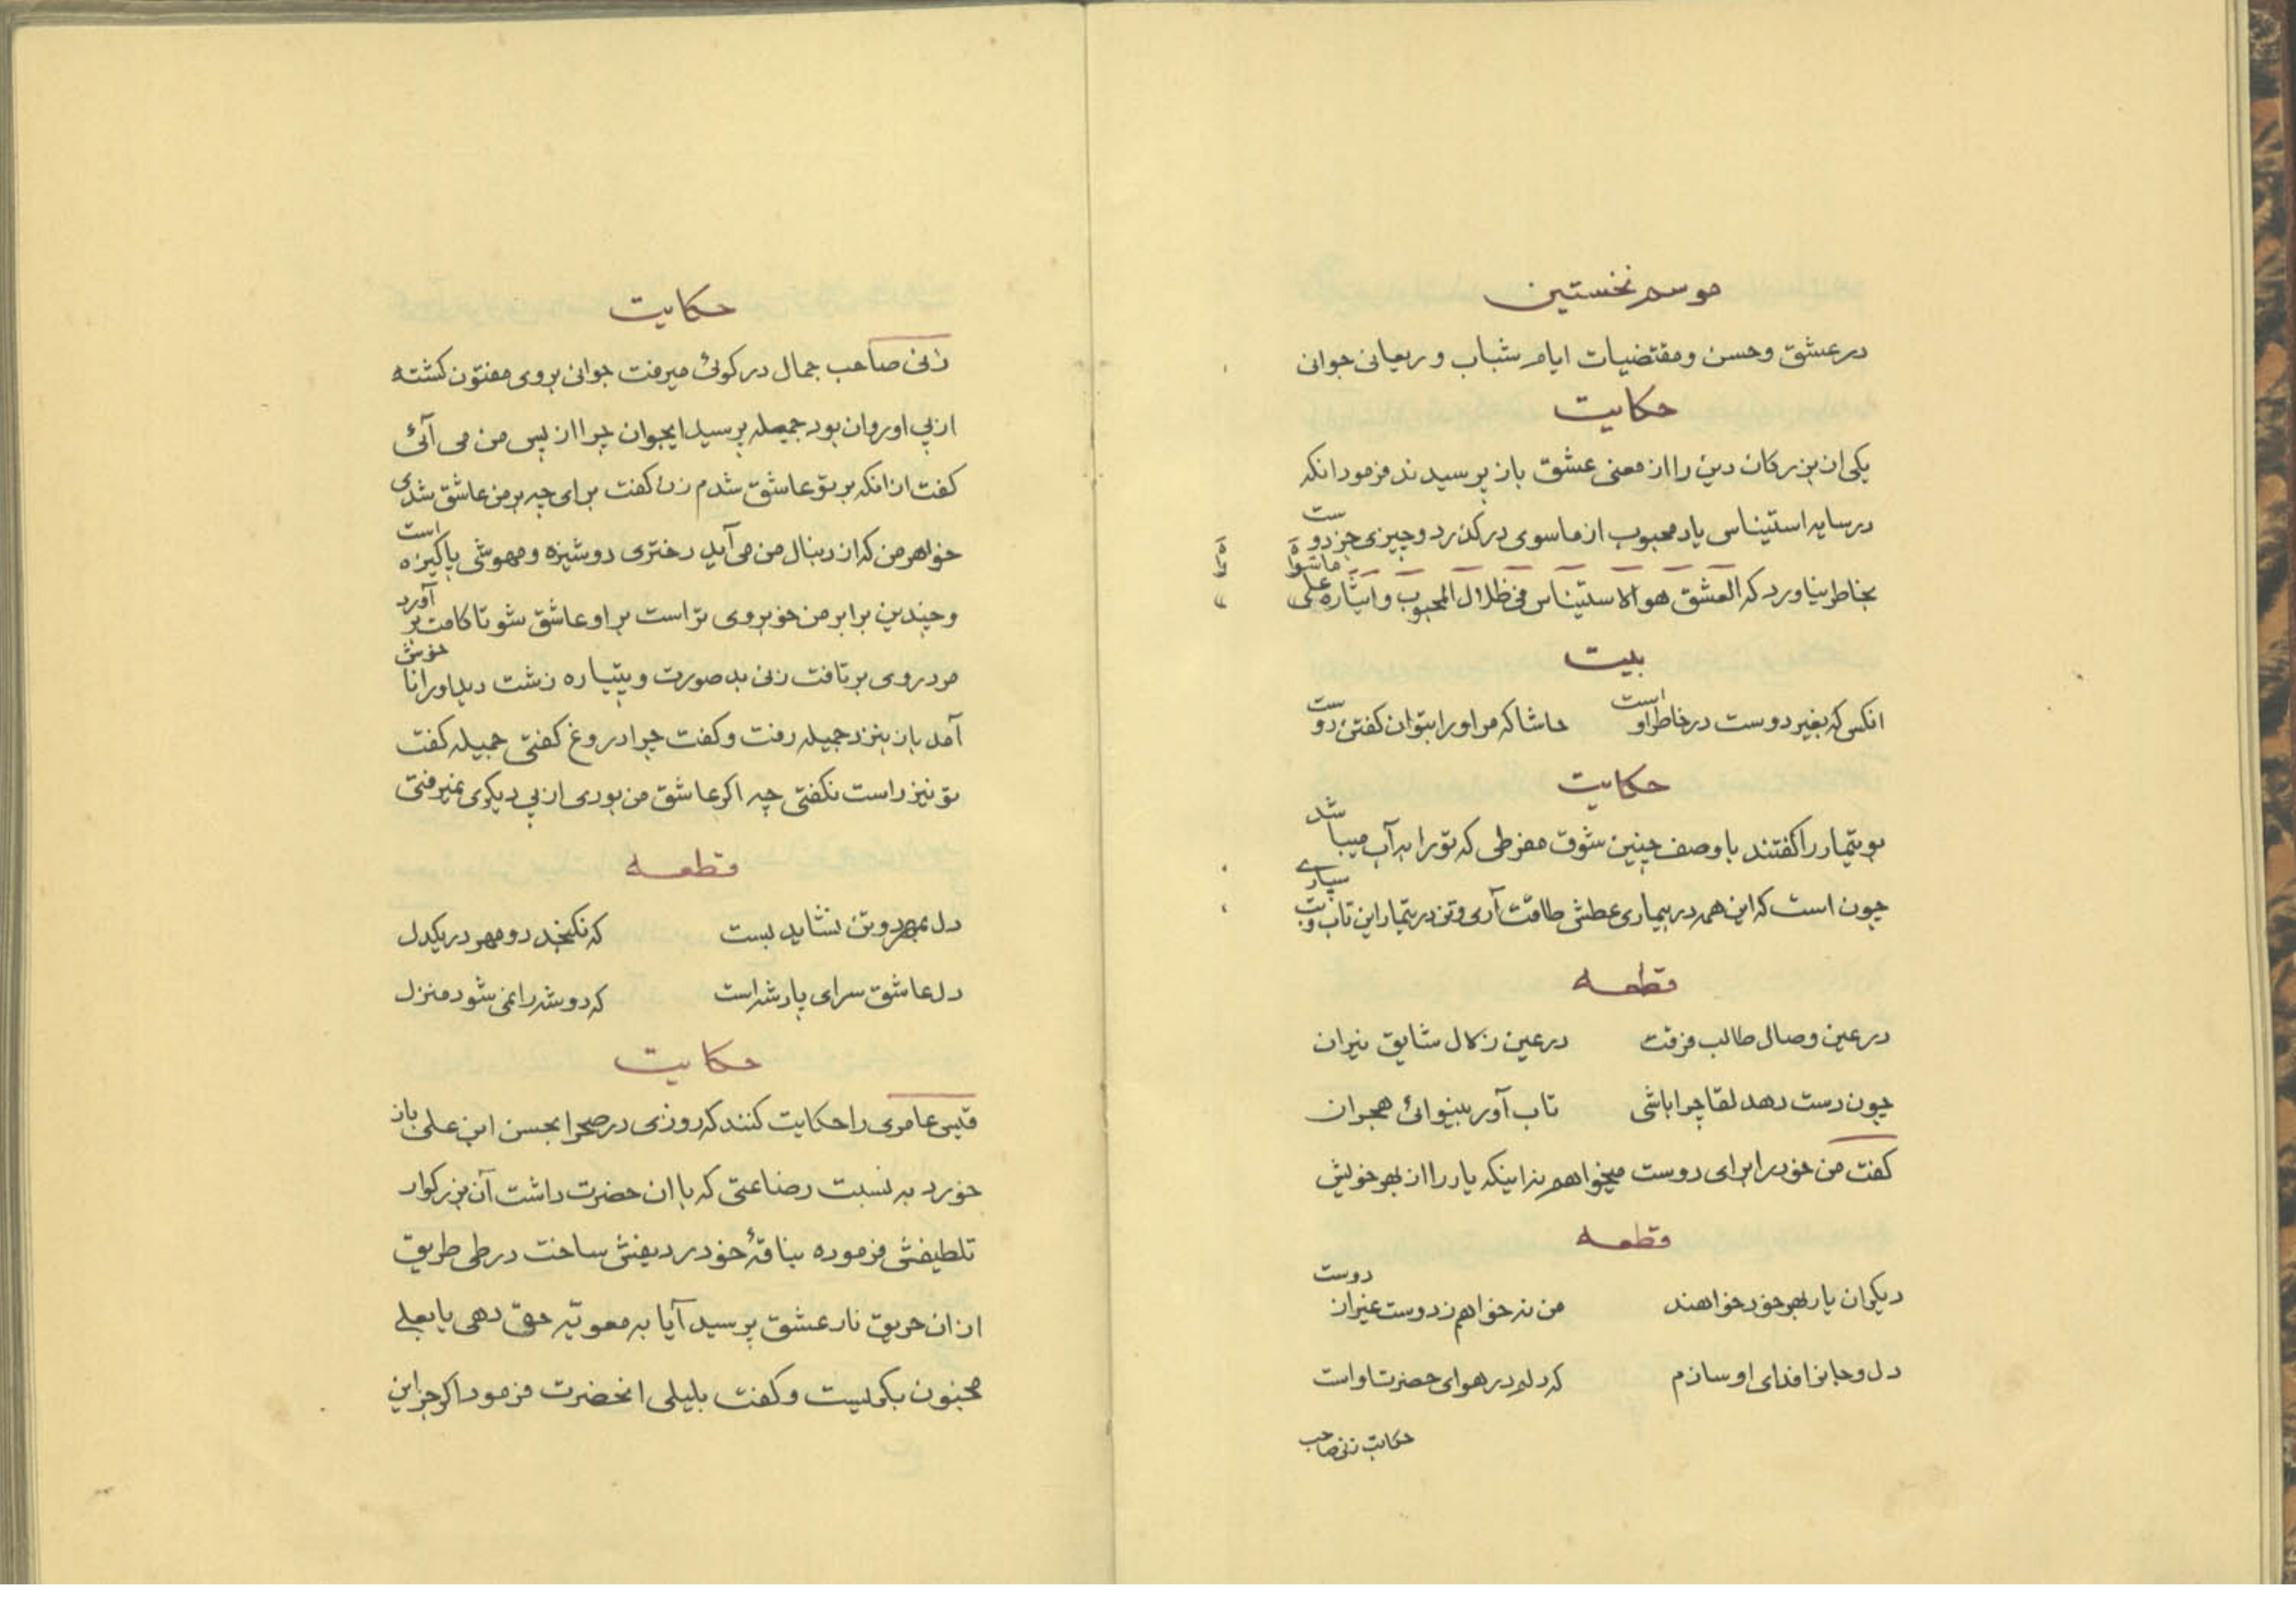 موسم نخستین
در عشق و حسن و مقتضیات ایام شباب و ریعانی جوانی
حکایت
یکی از بزرکان دین را از معنی عشق باز پرسیدند فرمود انکه
در سایه استیناس یاد محبوب از ماسوی در کذرد و چیزی جز دوست
بخاطر نیاورد که العشق هو الاستیناس فی ظلال المحبوب و ایثاره علی ماسواه
بیت
انکس که بغیر دوست در خاطر اوست حاشا که مر او را بتوان کفتن دوست
حکایت
بوتیمار را کفتند با وصف چنین شوق مفرطی که تو را به آب میباشد
چون است که این همه در بیماری عطش طاقت آری و تن در تیمار این تاب و تب سپاری
قطعه
در عین وصال طالب فرقت در عین زلال شایق نیران
چون دست دهد لقا چرا باشی تاب آور بینوائی هجران
کفت من خود را برای دوست میخواهم نه اینکه یار را از بهر خویش
قطعه
دیکران یار بهر خود خواهند من نه خواهم ز دوست غیر از دوست
دل و جانرا فدای او سازم که دلم در هوای حضرت اواست
حکایت زنی صاحب
حکایت
زنی صاحب جمال در کوئی میرفت جوانی بروی مفتون کشته
از پی او روان بود جمیله پرسید ایجوان چرا از پس من می آئی
کفت از انکه بر تو عاشق شدم زن کفت برای چه بر من عاشق شدی
خواهر من که از دنبال من می آید دختری دوشیزه و مهوشی پاکیزه است
و چندین برابر من خوبروی تر است بر او عاشق شو تا کامت بر آورد
مرد روی بر تافت زنی بد صورت و پتیاره زشت دید او را ناخوش
آمد باز بنزد جمیله رفت و کفت چرا دروغ کفتی جمیله کفت
تو نیز راست نکفتی چه اکر عاشق من بودی از پی دیکری نمیرفتی
قطعه
دل بمهر دو تن نشاید بست که نکنجد دو مهر در یکدل
دل عاشق سرای پادشه است که دو شه را نمی شود منزل
حکایت
قیس عامری را حکایت کنند که روزی در صحرا بحسن ابن علی باز
خورد به نسبت رضاعتی که با ان حضرت داشت آن بزرکوار
تلطیفش فرموده بناقهٔ خود ردیفش ساخت در طی طریق
از ان حریق نار عشق پرسید آیا به معویّه حق دهی یا بعلی
مجنون بکریست و کفت بلیلی انحضرت فرمود اکر جز این